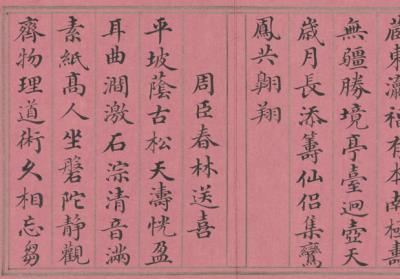 東瀛福有本南極壽
無疆勝境亭臺迥壺天
歲月長添籌仙侶集鸞
鳳共翺翔
周臣春林送喜
平坡蔭古松天濤恍盈
耳曲澗激石淙清音滿
素紙高人坐磐陀靜觀
齊物理道術久相忘芻